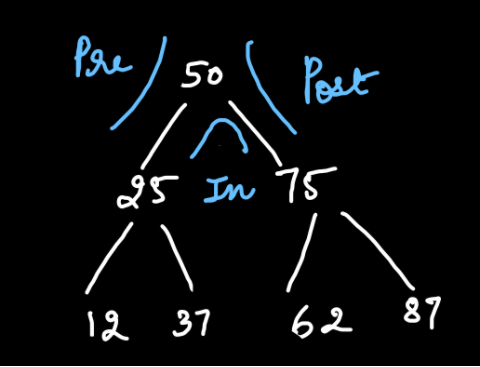 Pre 50 Post
25 In 75
12 37 62 87